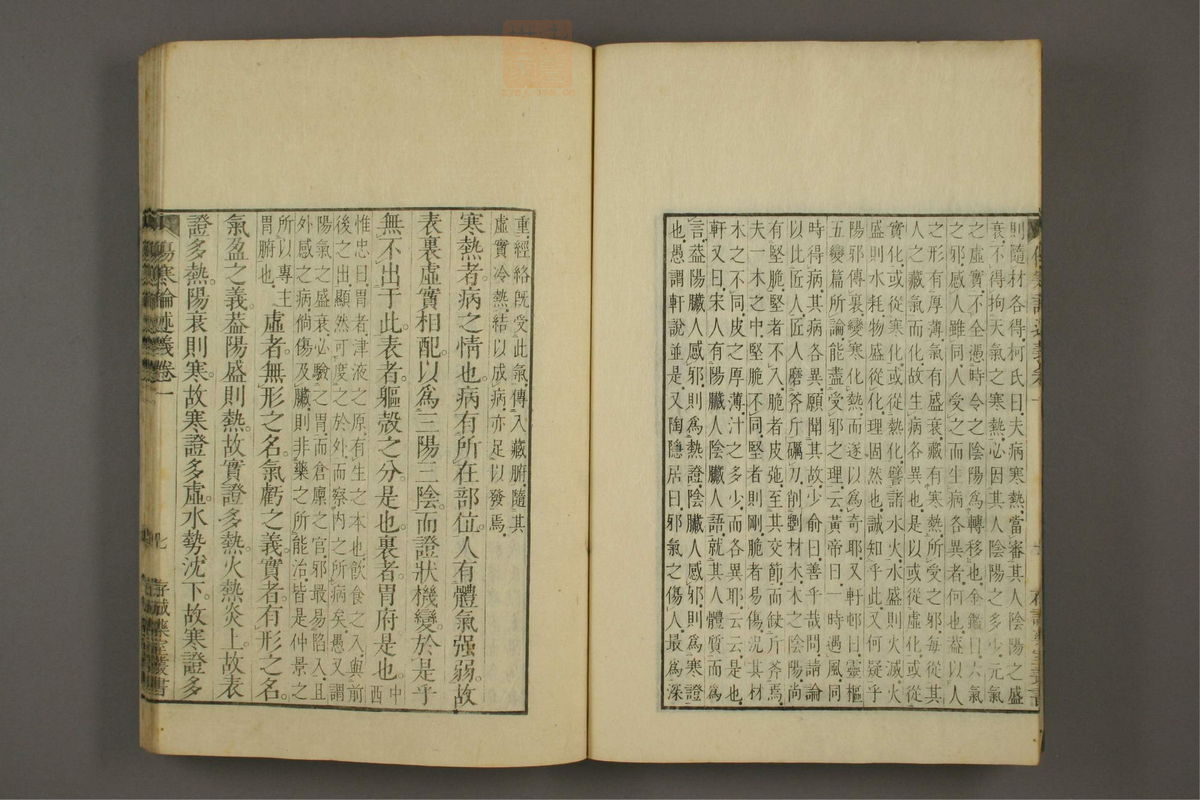 則隨材各得.柯氏曰.夫病寒熱.當審其人陰陽之盛
衰.不得拘天氣之寒熱.必因其人陰陽之多少.元氣
之虛實.不全憑時令之陰陽爲轉移也.金鑑曰.六氣
之邪.感人雖同.人受之而生病各異者.何也.葢以人
之形有厚薄.氣有盛衰.藏有寒熱.所受之邪.每從其
人之藏氣而化.故生病各異也.是以或從虛化.或從
實化.或從寒化.或從熱化.譬諸水火.水盛則火滅.火
盛則水耗.物盛從化.理固然也.誠知乎此.又何疑乎
陽邪傳裏變寒化熱.而遂以爲奇耶.又軒邨曰.靈樞
五變篇所論.能盡受邪之理.云黃帝曰.一時遇風.同
時得病.其病各異.願聞其故.少俞曰.善乎哉問.請論
以比匠人.匠人磨斧斤礪刀.削斲材木.木之陰陽.尚
有堅脆.堅者不入.脆者皮弛.至其交節.而缺斤斧焉.
夫一木之中.堅脆不同.堅者則剛.脆者易傷.況其材
木之不同.皮之厚薄.汁之多少.而各異耶.云云是也.
軒又曰.宋人有陽臟人陰臟人語.就其人體質而爲
言.葢陽臟人感邪.則爲熱證.陰臟人感邪.則爲寒證
也.愚謂軒說並是.又陶隱居曰.邪氣之傷人.最爲深
重.經絡旣受此氣.傳入藏腑.隨其
虛實冷熱.結以成病.亦足以發焉.
寒熱者。病之情也。病有所在部位。人有體氣强弱。故
表裏虛實相配。以爲三陽三陰。而證狀機變。於是乎
無不出于此。表者。軀殼之分。是也。裏者。胃府是也。中西
惟忠曰.胃者.津液之原.有生之本也.飲食之入.與前
後之出.顯然可度之於外.而察內之所病矣.愚又謂
陽氣之盛衰.必驗之胃.而倉廩之官.邪最易陷入.且
外感之病.倘傷及臟.則非藥之所能治.皆是仲景之
所以專主
胃腑也.
虛者。無形之名。氣虧之義。實者。有形之名。
氣盈之義。葢陽盛則熱。故實證多熱。火熱炎上。故表
證多熱。陽衰則寒。故寒證多虛。水勢沈下。故寒證多
傷寒論述義卷一
七
存誠藥室叢書